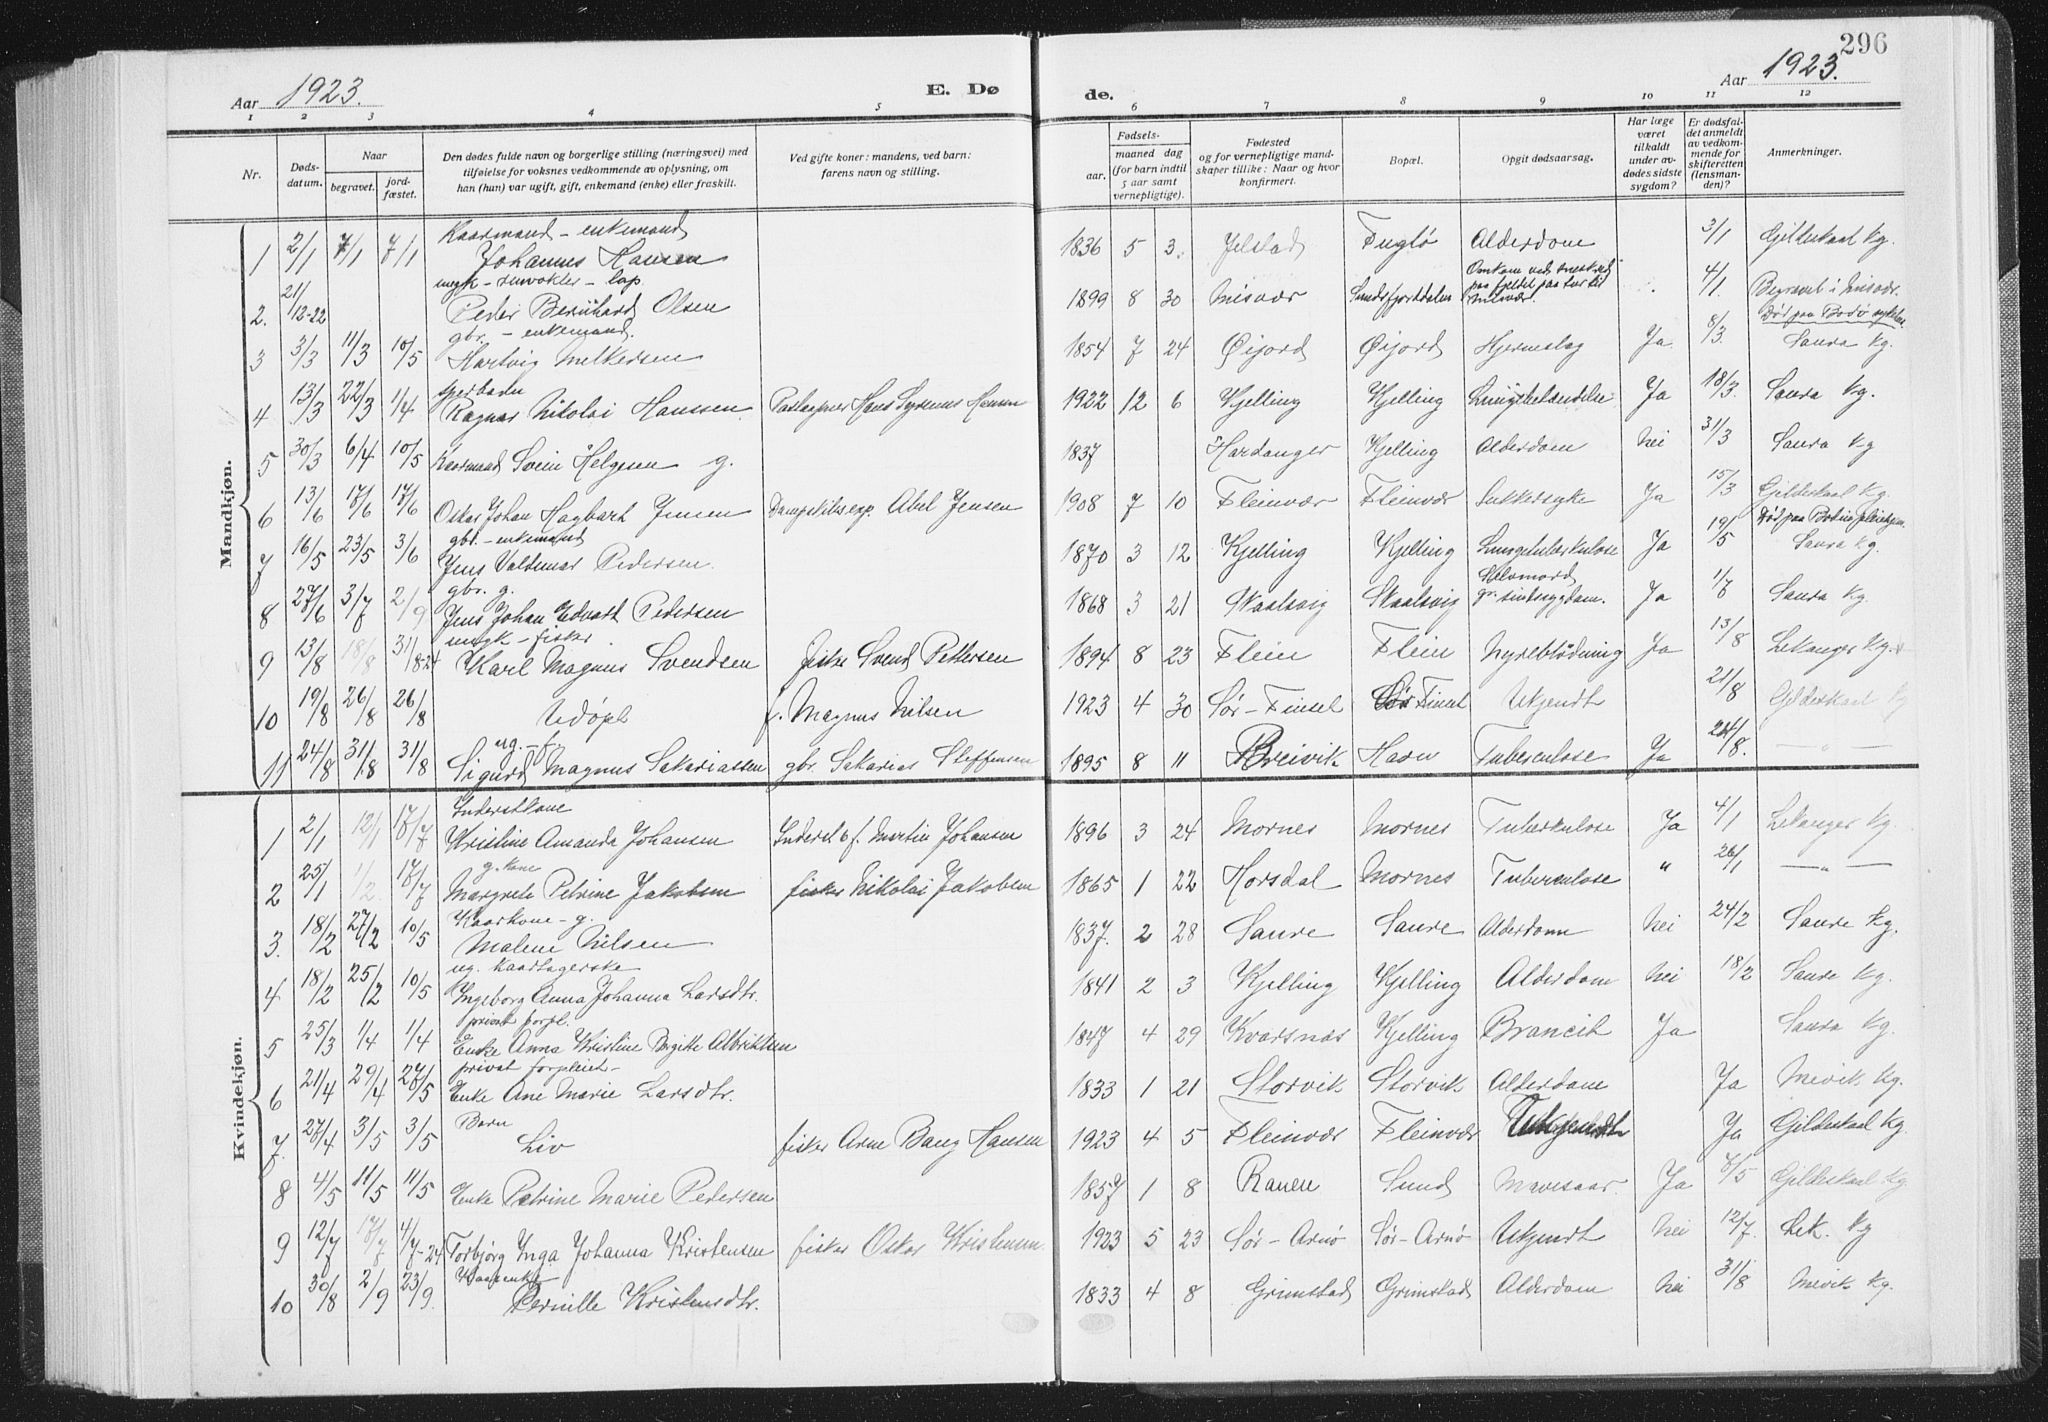 296
Aar 1923. E. Dø de. Aar 1923.
1 2 3 4 5 6 7 8 9 10 11 12
Nr. Døds-datum. Naar begravet. jord-fæstet. Den dødes fulde navn og borgerlige stilling (næringsvei) med tilføielse for voksnes vedkommende av oplysning, om han (hun) var ugift, gift, enkemand (enke) eller fraskilt. Ved gifte koner: mandens, ved barn: farens navn og stilling. Fødsels- aar. maaned dag (for barn indtil 5 aar samt vernepligtige). Fødested og for vernepligtige mandskaper tillike: Naar og hvor konfirmert. Bopæl. Opgit dødsaarsag. Har læge været tilkaldt under avdødes sidste sygdom? Er dødsfaldet anmeldt av vedkommende for skifteretten (lensmanden)? Anmerkninger.
Mandkjøn.
Kaarmand - enkemand
1 2/1 7/1 7/1 Johannes Hansen 1836 5 3. Jelstad Fuglø Alderdom 3/1 Gildeskaal Kg.
ungk - - lap.
2. 21/12-22 Peder Bernhard Olsen 1899 8 30 Misvær Sundsfjorddalen Omkom ved sneskred paa fjeldet paa tur til Misvær. 4/1. Begravet i Misvær.
gbr. - enkemand. Død paa Bodø sykehus
3 3/3 11/3 10/5 Hartvig Melkersen 1854 7 24 Øijord Øijord Hjerneslag Ja 8/3. Saura Kg.
Spædbarn
4 13/3 22/3 1/4 Ragnar Nikolai Hanssen Hans Hansen 1922 12 6 Kjelling Kjelling Lungebetændelse Ja 18/3. Saura Kg.
5 30/3 6/4 10/5 Kaarmand Svein Helgesen g. 1837 Hardanger Kjelling Alderdom Nei 31/3 Saura Kg
6 13/6 17/6 17/6 Oskar Johan Hagbart Jensen Dampskibsexp. Abel Jensen 1908 7 10 Fleinvær Fleinvær Sukkersyke Ja 15/3 Gildeskaal Kg.
gbr. - enkemand Død paa Bodin pleiehjem
7 16/5 23/5 3/6 Jens Valdemar Pedersen. 1870 3 12 Kjelling Kjelling Lungetuberkulose Ja 19/5 Saura Kg.
gbr. g. Selvmord
8 27/6 3/7 2/9 Jens Johan Edvart Pedersen 1868 3 21 Skaalsvig Skaalsvig gr. sindssygdom. Ja 1/7 Saura Kg.
ungk - fisker
9 13/8 18/8 31/8-24 Karl Magnus Svendsen fisker Svend Pettersen 1894 8 23 Flein Flein Nyreblødning Ja 13/8 Lekanger Kg.
10 19/8 26/8 26/8 Udøpt f. Magnus Nilsen 1923 4 30 Sør-Finset Sør Finset Ukjendt 21/8 Gildeskaal Kg
ug. - f.
11 24/8 31/8 31/8 Sigurd Magnus Sakariassen gbr. Sakarias Steffensen 1895 8 11 Breivik Havn Tuberculose Ja 24/8. — " —
Kvindekjøn.
Inderstkone
1 2/1 12/1 17/7 Kristine Amanda Johansen Inderst & f. Martin Johansen 1896 3 24 Mornes Mornes Tuberkulose Ja 4/1 Lekanger Kg
g. kone
2 25/1 1/2 17/7 Margrete Petrine Jakobsen fisker Nikolai Jakobsen 1865 1 22 Horsdal Mornes Tuberculose " 26/1 — " —
Kaarkone - g.
3. 18/2 27/2 10/5 Malene Nilsen 1837. 2 28 Saure Saure Alderdom Nei 24/2 Saure Kg.
ug. Kaartagerske
4 18/2 25/2 10/5 Ingeborg Anna Johanna Larsdtr. 1841 2 3 Kjelling Kjelling Alderdom Nei 18/2 Saure Kg.
privat forpl.
5 25/3 1/4 1/4 Enke Anna Kristine Birgitte Albriktsen 1847 4 29 Kvarsnæs Kjelling Broncit Ja Saura Kg.
privat forpleiet-
6 21/4 29/4 27/5 Enke Ane Marie Larsdtr. 1833 1 21 Storvik Storvik Alderdom Ja Mevik Kg.
Barn
7. 27/4 3/5 3/5 Liv fisker Arne Bang Hansen 1923 4 5 Fleinvær Fleinvær Ukjendt Ja Gildeskaal Kg.
8 4/5 11/5 11/5 Enke Petrine Marie Pedersen 1857 1 8 Ranen Sund Mavesaar Ja 8/5 Gildeskaal Kg.
9 12/7 17/7 4/7-24 Torbjørg Inga Johanna Kristensen fisker Oskar Kristensen 1923 5 23 Sør-Arnø Sør-Arnø Ukjendt Nei 12/7. Lek. Kg
Kaarenke
10 30/8 2/9 23/9 Pernille Kristensdtr. 1833 4 8 Grimstad Grimstad Alderdom Nei 31/8 Mevik Kg.